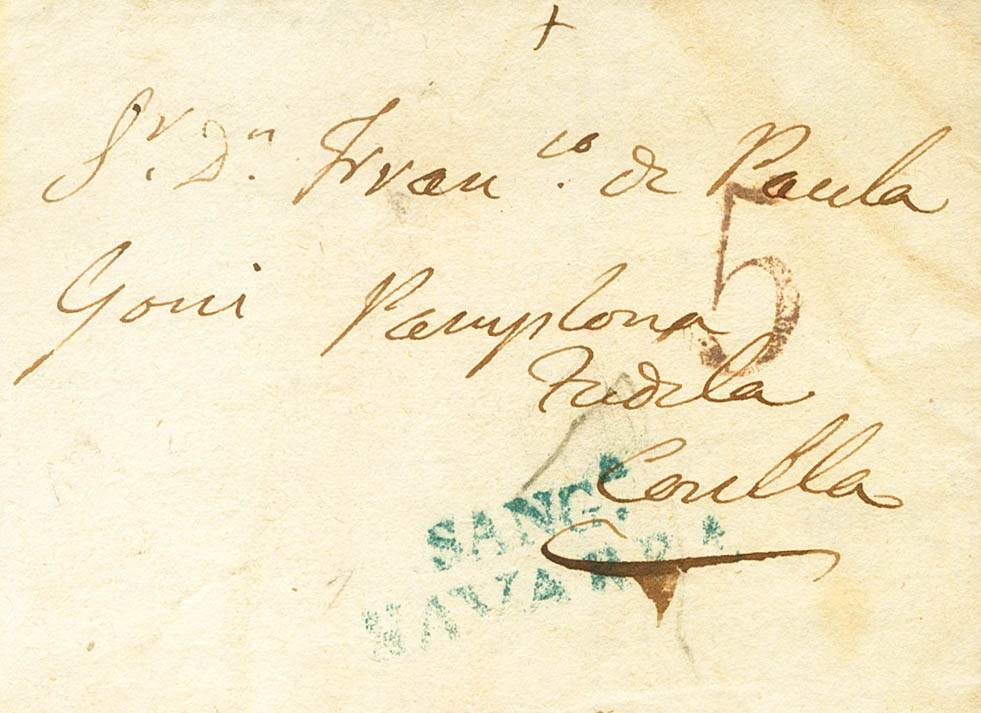 +
Sr. Dn. Franco. de Paula
5
Goñi Pamplona
Tudela
Corella
SANGA.
NAVARRA.